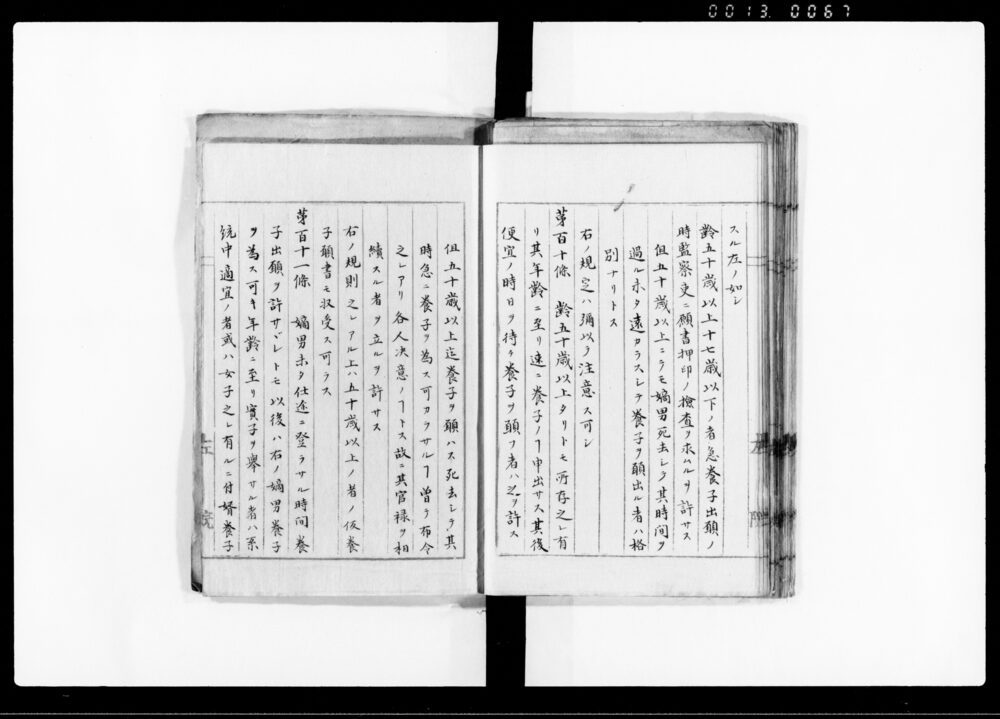 0013 0067
スル左ノ如シ
齡五十歲以上十七歲以下ノ者急養子出願ノ
時監察吏ニ願書押印ノ檢查ヲ求ムルヲ許サス
但五十歲以上ニテモ嫡男死去シテ其時間ヲ
過ル未タ遠カラスシテ養子ヲ願出ル者ハ格
別ナリトス
右ノ規定ハ彌以テ注意ス可シ
第百十條 齡五十歲以上タリトモ所存之レ有
リ其年齡ニ至リ速ニ養子ノヿ申出サス其後
便宜ノ時日ヲ待チ養子ヲ願フ者ハ之ヲ許ス
但五十歲以上迄養子ヲ願ハス死去シテ其
時急ニ養子ヲ為ス可カラサルヿ曾テ布令
之レアリ各人決意ノヿトス故ニ其官祿ヲ相
續スル者ヲ立ルヲ許サス
右ノ規則之レアル上ハ五十歲以上ノ者ノ仮養
子願書モ收受ス可ラス
第百十一條 嫡男未タ仕途ニ登ラサル時間養
子出願ヲ許サヽレトモ以後ハ右ノ嫡男養子
ヲ為ス可キ年齡ニ至リ實子ヲ擧サル者ハ系
統中適宜ノ者或ハ女子之レ有ルニ付婿養子
左院